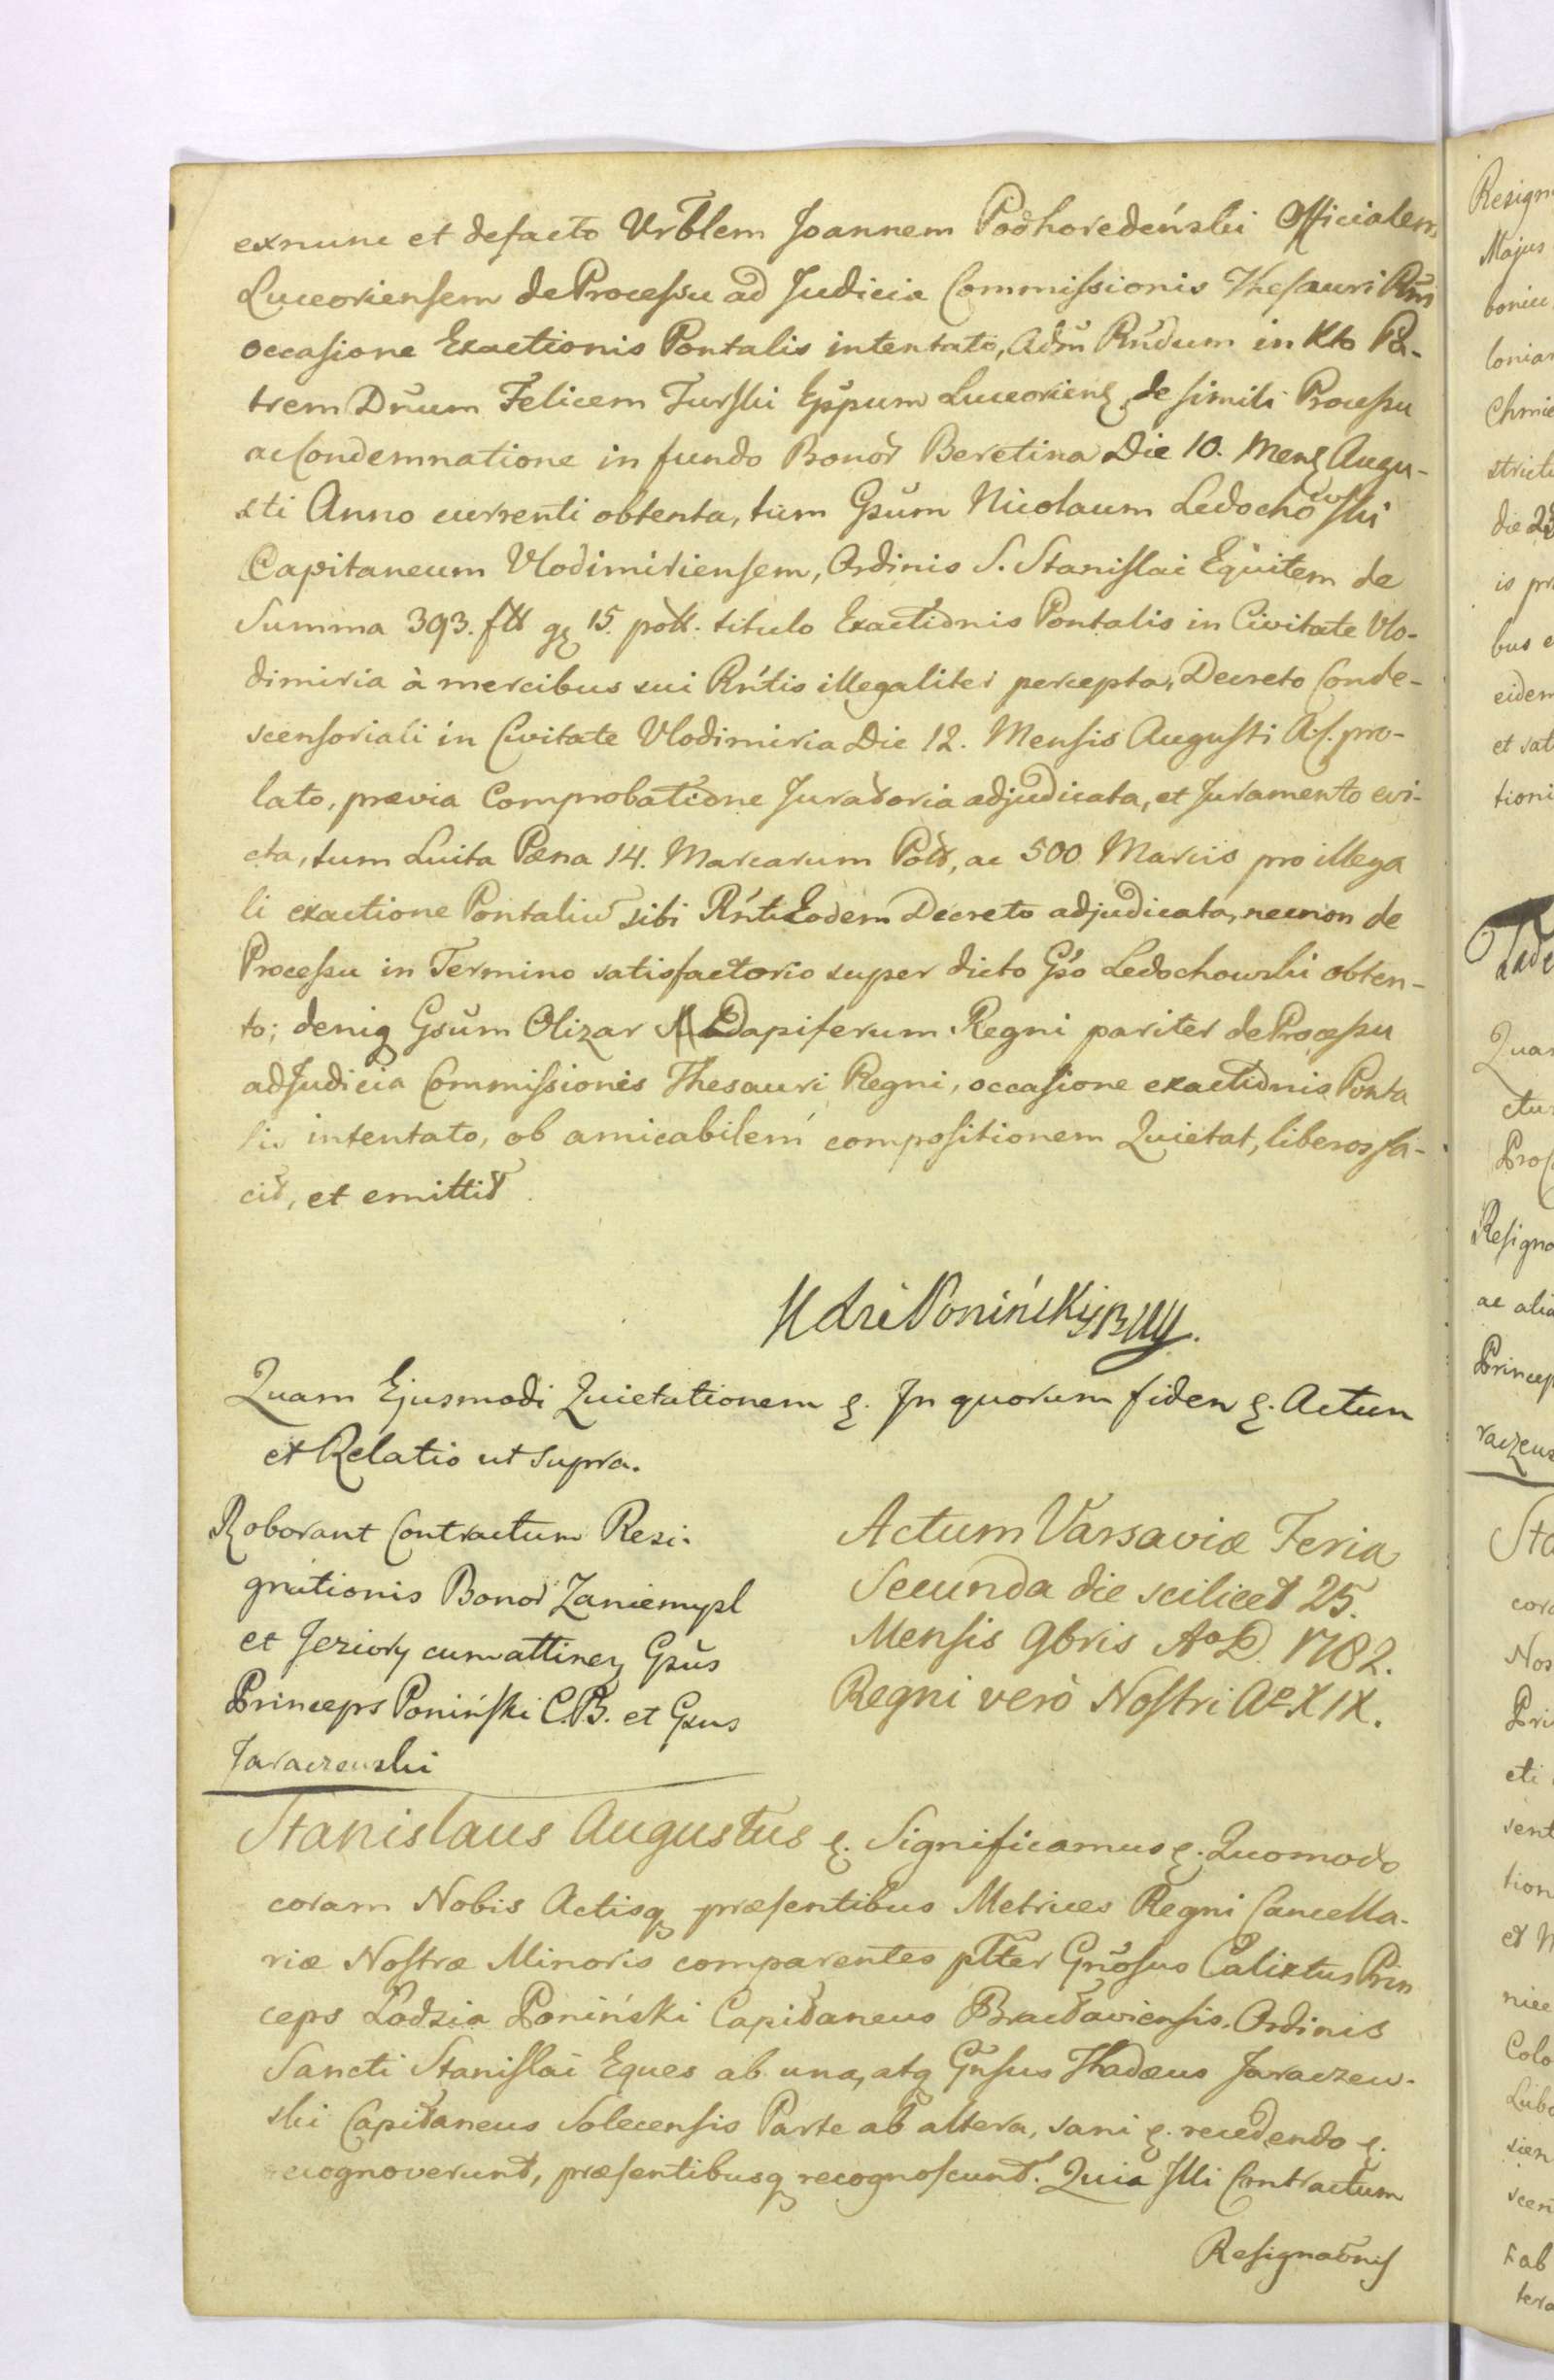 exnunc et defacto Vrblem Joannem Podhoredeński Officialem
Luceoriensem de Processu ad Judicia Commissionis Thesauri Rni
occasione Exactionis Pontalis intentato, Adm Rndum in Xto Pa-
trem Dnum Felicem Turski Eppum Luceorien, de simili Processu
ac Condemnatione in fundo Bonor Beretina Die 10. Mens Augu-
sti Anno currenti obtenta, tum Gsum Nicolaum Ledochowski
Capitaneum Vlodimiriensem, Ordinis S. Stanislai Equitem de
Summa 393. fl gr 15. pol. titulo Exactionis Pontalis in Civitate Vlo-
dimiria à mercibus sui Rntis illegaliter percepta, Decreto Conde-
scensoriali in Civitate Vlodimiria Die 12. Mensis Augusti A. pro-
lato, prævia Comprobatione Juratoria adjudicata, et Juramento evi-
cta, tum Luita Pæna 14. Marcarum Pol, ac 500 Marcis pro illega
li exactione Pontaliu sibi Rnti Eodem Decreto adjudicata, necnon de
Processu in Termino satisfactorio super dicto Gso Ledochowski obten-
to; deniq Gsum Olizar Dapiferum Regni pariter de Processu
ad Judicia Commissionis Thesauri Regni, occasione exactionis Ponta
lis intentato, ob amicabilem compositionem Quietat, liberos fa-
cit, et emittit.
Poniński
Quam Ejusmodi Quietationem &. In quorum fidem &. Actum
et Relatio ut supra.
Roborant Contractum Resi-
gnationis Bonor Zaniemysl
et Jeziory cum attinen Gsus
Princeps Poniński C.B. et Gsus
Jaraczewski
Actum Varsaviæ Feria
Secunda die scilicet 25.
Mensis 9bris Ao D. 1782.
Regni verò Nostri Ao XIX.
Stanislaus Augustus &. Significamus &. Quomodo
coram Nobis Actisq præsentibus Metrices Regni Cancella-
riæ Nostræ Minoris comparentes plter Gnosus Calixtus Prin
ceps Lodzia Poniński Capitaneus Braclaviensis. Ordinis
Sancti Stanislai Eques ab una, atq Gnsus Thadæus Jaraczew-
ski Capitaneus Solecensis Parte ab altera, sani &. recedendo &.
recognoverunt, præsentibusq recognoscunt. Quia Illi Contractum
Resignaonis